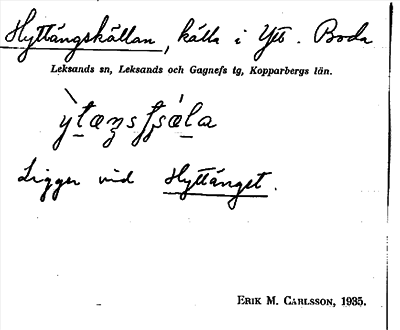 Hyttängskällan, källa i Ytt. Boda
Leksands sn, Leksands och Gagnefs tg, Kopparbergs län.
Ligger vid Hyttänget.
ERIK M. CARLSSON, 1935.